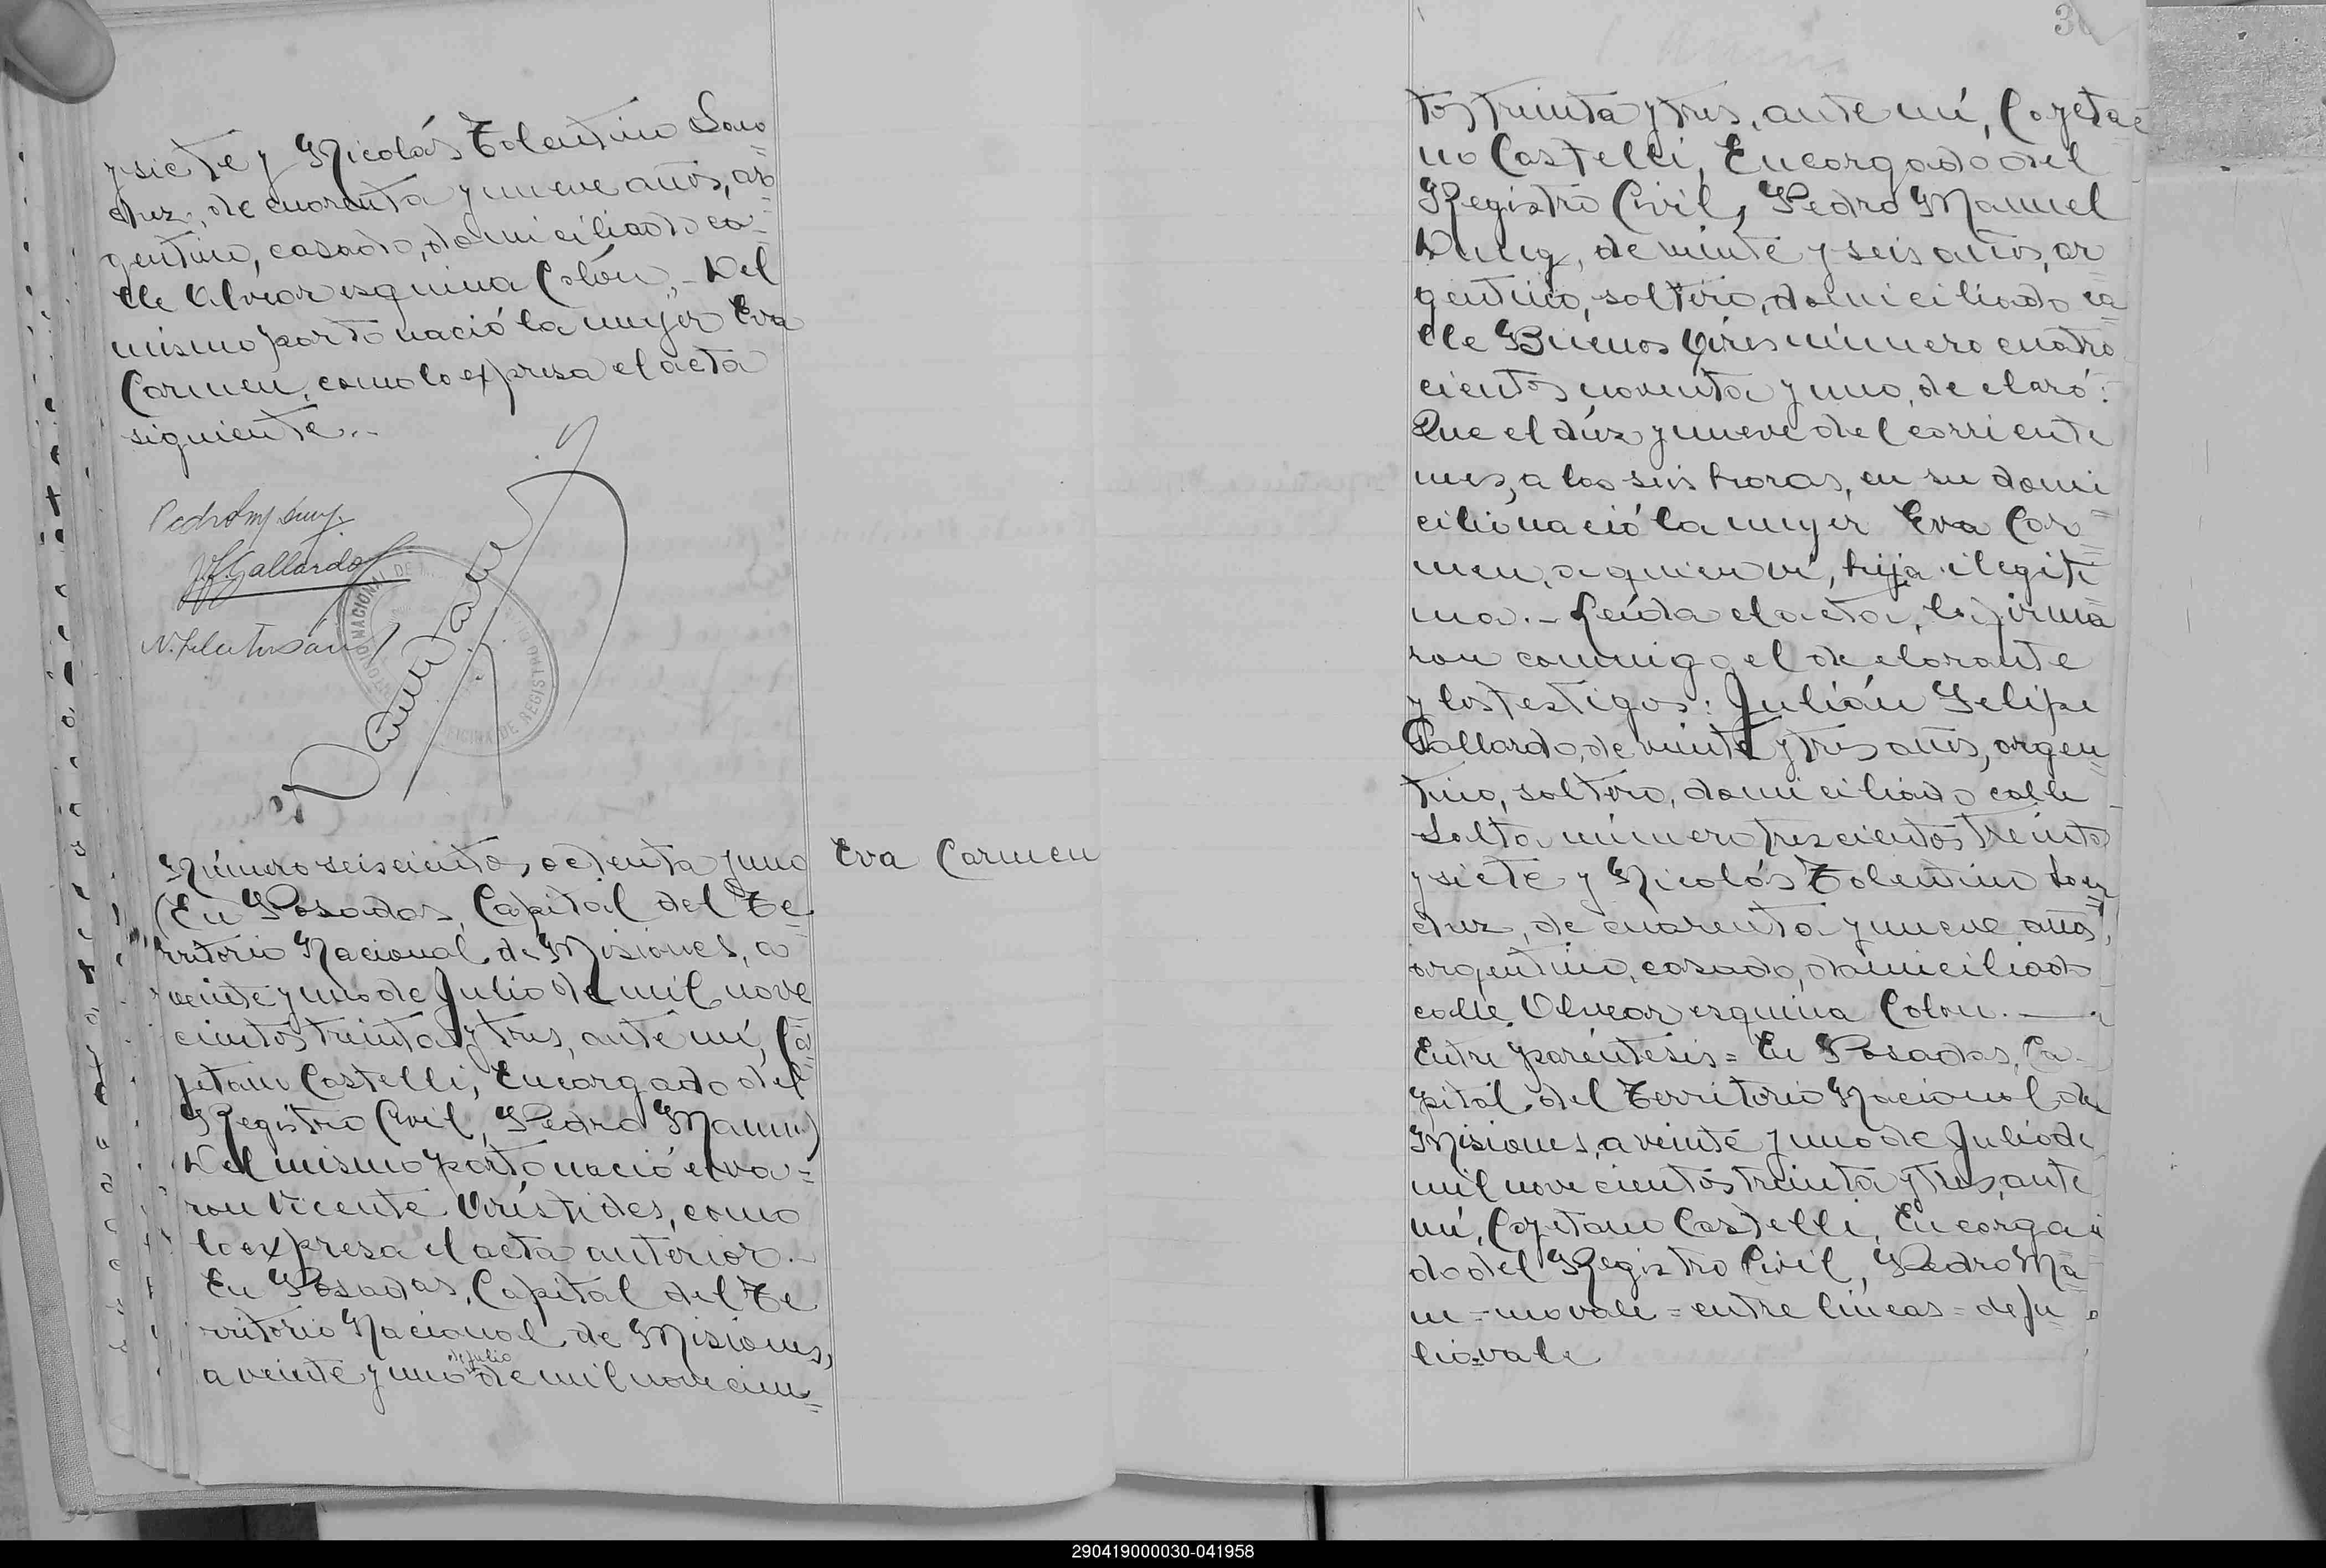 y siete y Nicolás Tolentino San=
chez, de cuarenta y nueve años, ar=
gentino, casado, domiciliado ca=
lle Alvear esquina Colón.- Del
mismo parto nació la mujer Eva
Carmen, como lo expresa el acta
siguiente..-
J.F. Gallardo
NACIONAL DE
OFICINA DE REGISTRO
Número seiscientos ochenta y uno
(En Posadas, Capital del Te=
rritorio Nacional de Misiones, a
veinte y uno de Julio de mil nove
cientos treinta y tres, ante mí, Ca=
yetano Castelli, Encargado del
Registro Civil, Pedro Manu)
Del mismo parto nació el va=
ron Vicente Arístides, como
lo expresa el acta anterior.-
En Posadas, Capital del Te
rritorio Nacional de Misiones,
de Julio
a veinte y uno de mil novecien=
Eva Carmen
tos treinta y tres, ante mí, Cayeta=
no Castelli, Encargado del
Registro Civil, Pedro Manuel
de veinte y seis años, ar=
gentino, soltero, domiciliado ca=
lle Buenos Aires número cuatro
cientos noventa y uno, declaró:
Que el diez y nueve del corriente
mes, a las seis horas, en su domi
cilio nació la mujer Eva Car=
men, a quien ví, hija ilegíti=
ma.- Leída el acta, la firma
ron conmigo el declarante
y los testigos: Julián Felipe
Gallardo, de veinte y tres años, argen=
tino, soltero, domiciliado calle
Salta número trescientos treinta
y siete y Nicolás Tolentino San=
chez, de cuarenta y nueve años,
argentino, casado, domiciliado
calle Alvear esquina Colon. —
Entre paréntesis = En Posadas, Ca=
pital del Territorio Nacional de
Misiones, a veinte y uno de Julio de
mil novecientos treinta y tres, ante
mí, Cayetano Castelli, Encarga=
do del Registro Civil, Pedro Ma=
nu = no vale = entre líneas = de Ju=
lio = vale
290419000030-041958